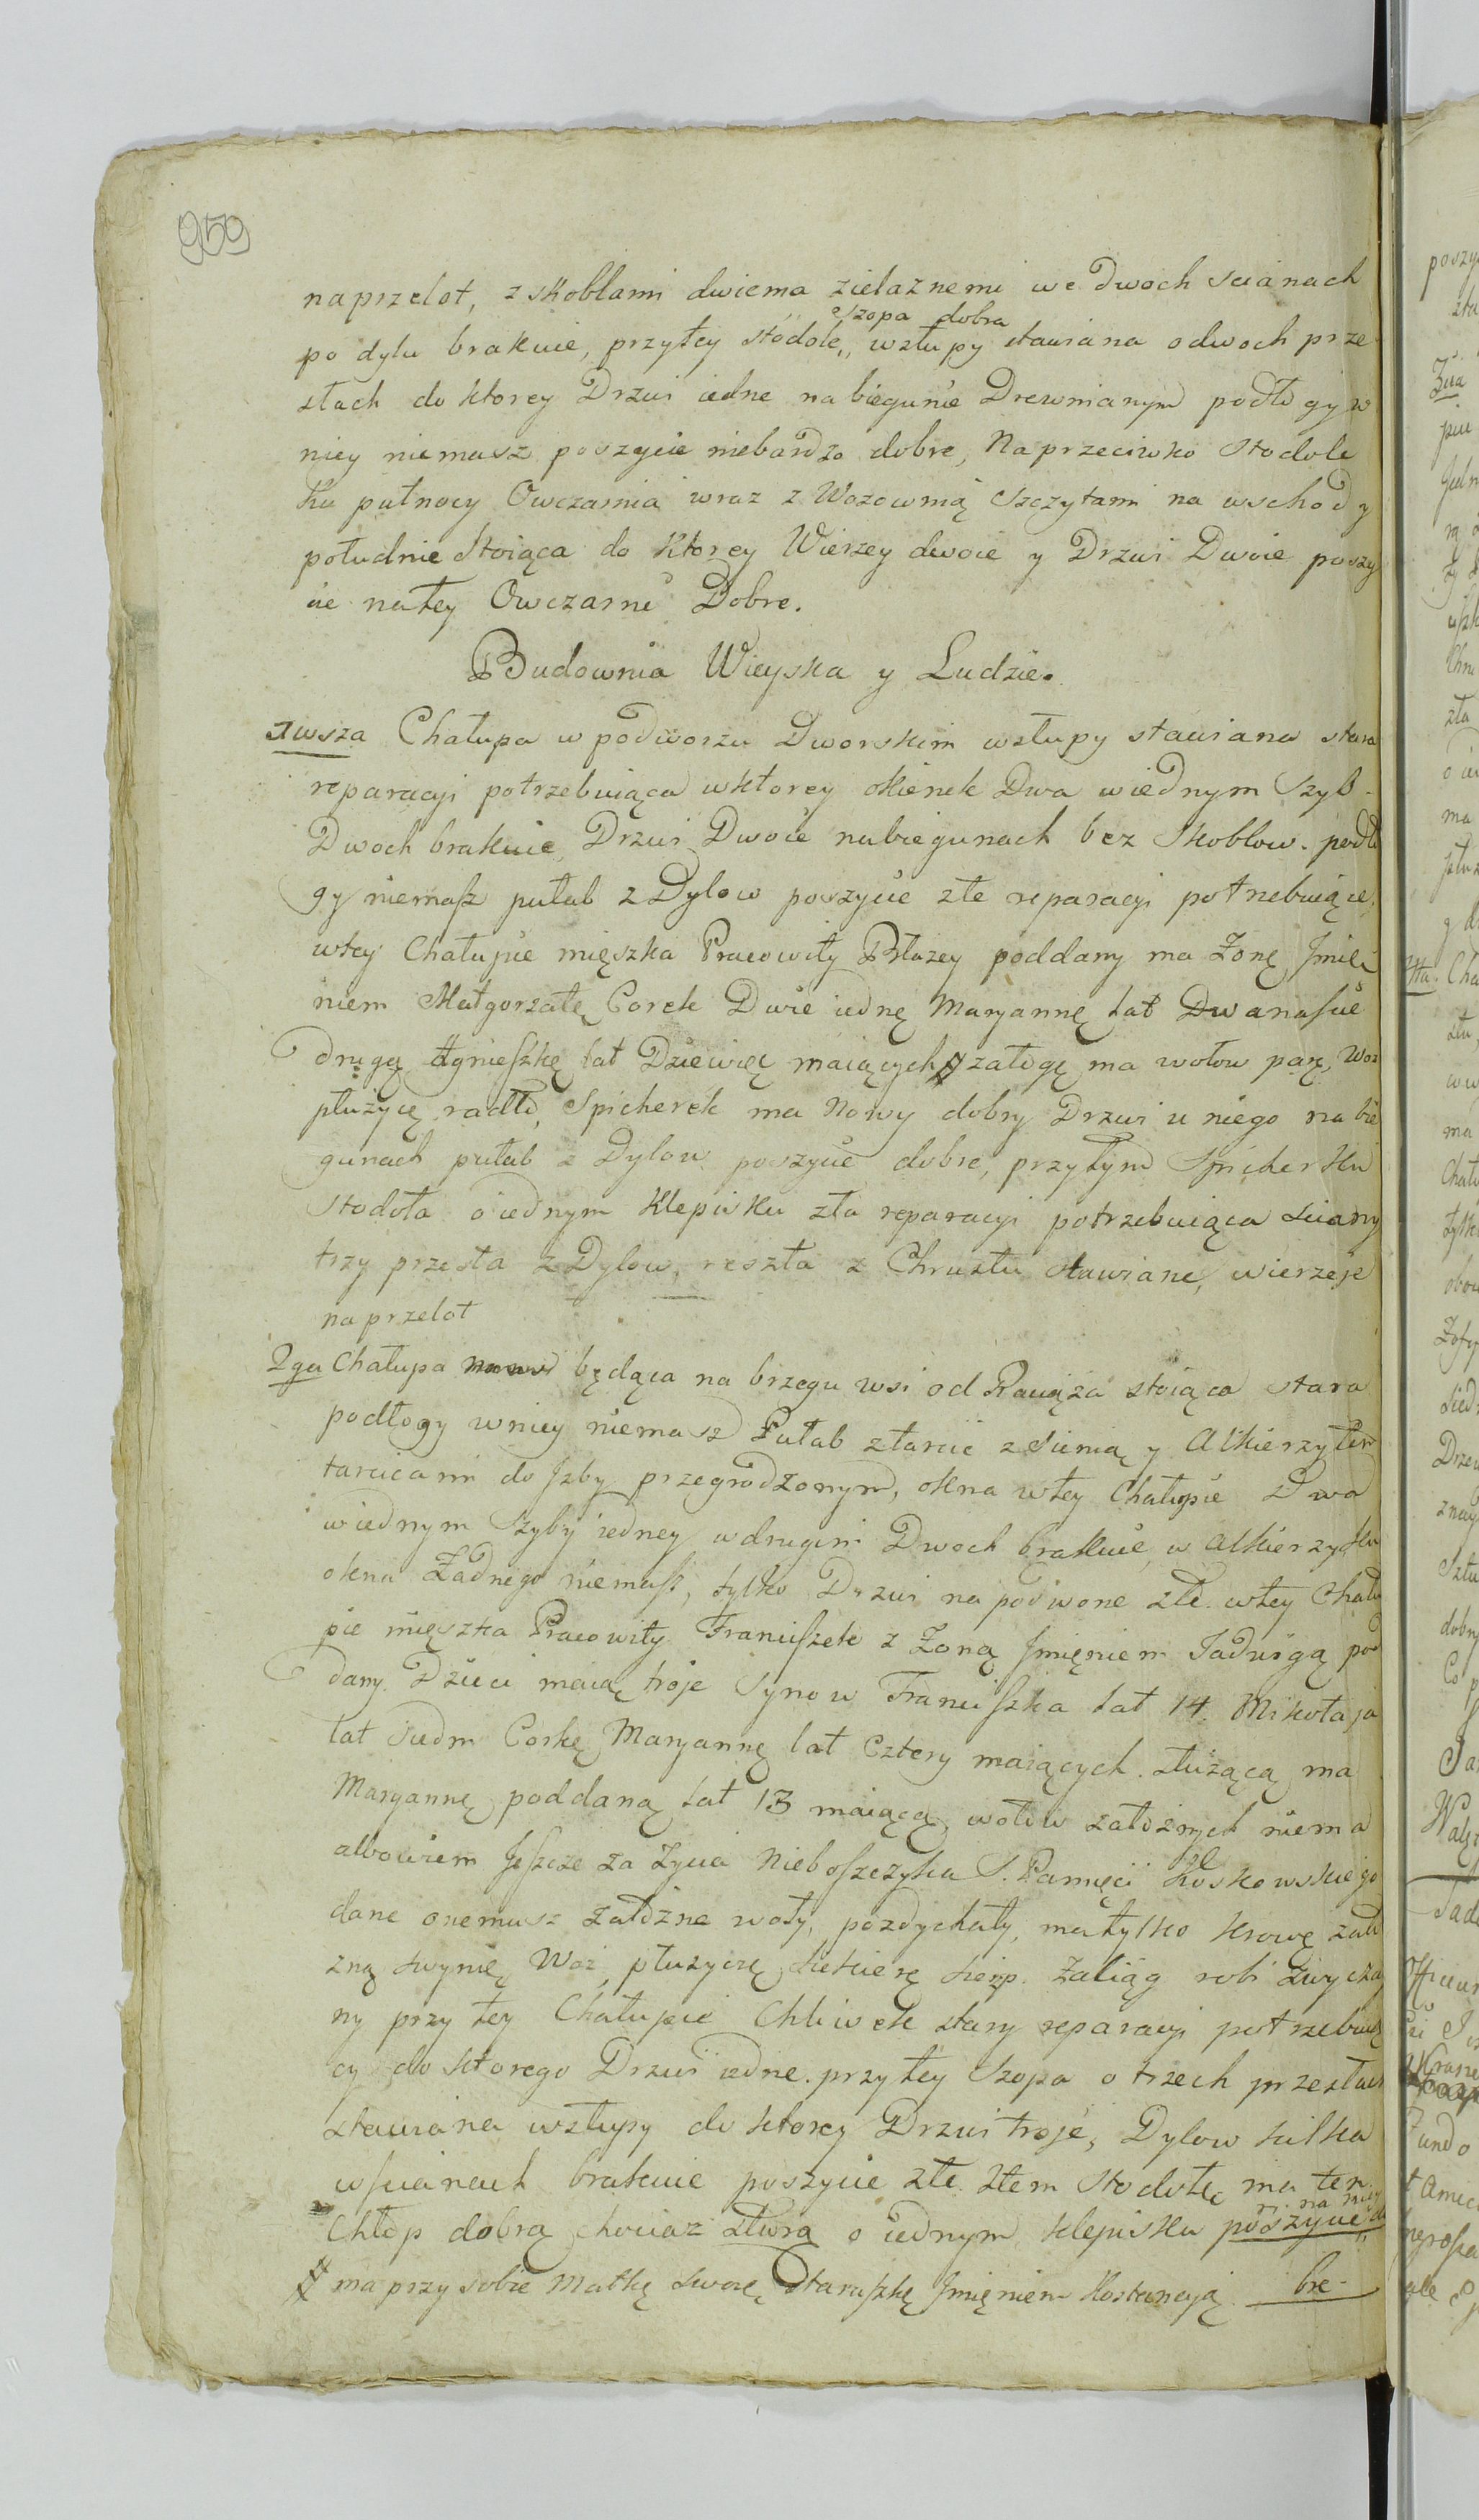 959
naprzelot, z skoblami dwiema zielaznemi we dwoch scianach
Szopa dobra
po dylu brakuie, przytey stodole,, wsłupy stawiana odwoch prze
słach do ktorey Drzwi iedne na biegunie Drewnianym podłogy w
niey niemasz poszycie niebardzo dobre, Naprzeciwko Stodole
ku pułnocy Owczarnia wraz z Wozownią Szczytami na wschod y
południe Stoiąca do ktorey Wierzey dwoie y Drzwi Dwoie poszy
cie natey Owczarni Dobre.
Budownia Wieyska y Ludzie.
1wsza Chałupa w podworzu Dworskim wsłupy stawiana stara
reparacyi potrzebuiąca wktorey okienek Dwa wiednym Szyb
Dwoch brakuie, Drzwi Dwoie nabiegunach bez Skoblow. podło
gy niemasz pułab z Dylow poszycie złe reparacyi potrzebuiące,
wtey Chałupie mięszka Pracowity Błazey poddany ma Zonę Jmię
niem Małgorzatę Corek Dwie iednę Maryannę lat Dwanascie
drugą Agnieszkę lat Dziewięć maiących # załogę ma wołow parę, Woz
płużycę radło, Spicherek ma Nowy dobry Drzwi u niego na bie
gunach pułab z Dylow poszycie dobre, przytym Spicherku
Stodoła o iednym Klepisku zła reparacyi potrzebuiąca sciany
trzy przesła z Dylow, reszta z Chrustu stawiane, wierzeje
naprzelot
2ga Chałupa będąca na brzegu wsi od Raciąża stoiąca stara
podłogy wniey niemasz Pułab ztarcic zsienią y Alkierzykiem
tarcicami do Jzby przegrodzonym, okna wtey Chałupie Dwa
wiednym Szyby iedney wdrugim Dwoch brakuie, w Alkierzyku
okna Żadnego niemasz, tylko Drzwi napoiwone złe. wtey Chału
pie mięszka Pracowity Franciszek z Zoną Jmięniem Jadwigą pod
dany. Dzieci maią troje Synow Franciszka lat 14. Mikołaja
lat siedm Corkę Maryannę lat Cztery maiących. służącą ma
Maryannę poddaną lat 13 maiącą, wołow załoznych niema
albowiem Jeszcze za Zycia Nieboszczyka S. Pamięci Koskowskiego
dane onemusz załozne woły, pozdychały, matylko krowę zało
zną swynię Woz, płużycę siekierę sierp. Zaciąg robi zwycza
ny przy tey Chałupie Chliwek stary reparacyi potrzebuią
cy do ktorego Drzwi iedne. przytey Szopa o trzech przesłach
stawiana wsłupy do ktorey Drzwi troje, Dylow kilka
wscianach brakuie poszycie złe. Stem Stodołę ma ten
Chłop dobrą chociaz starą o iednym klepisku na niey poszycie do
# ma przy sobie Matkę swoię Staruszkę Jmięniem Kostancyją bre-